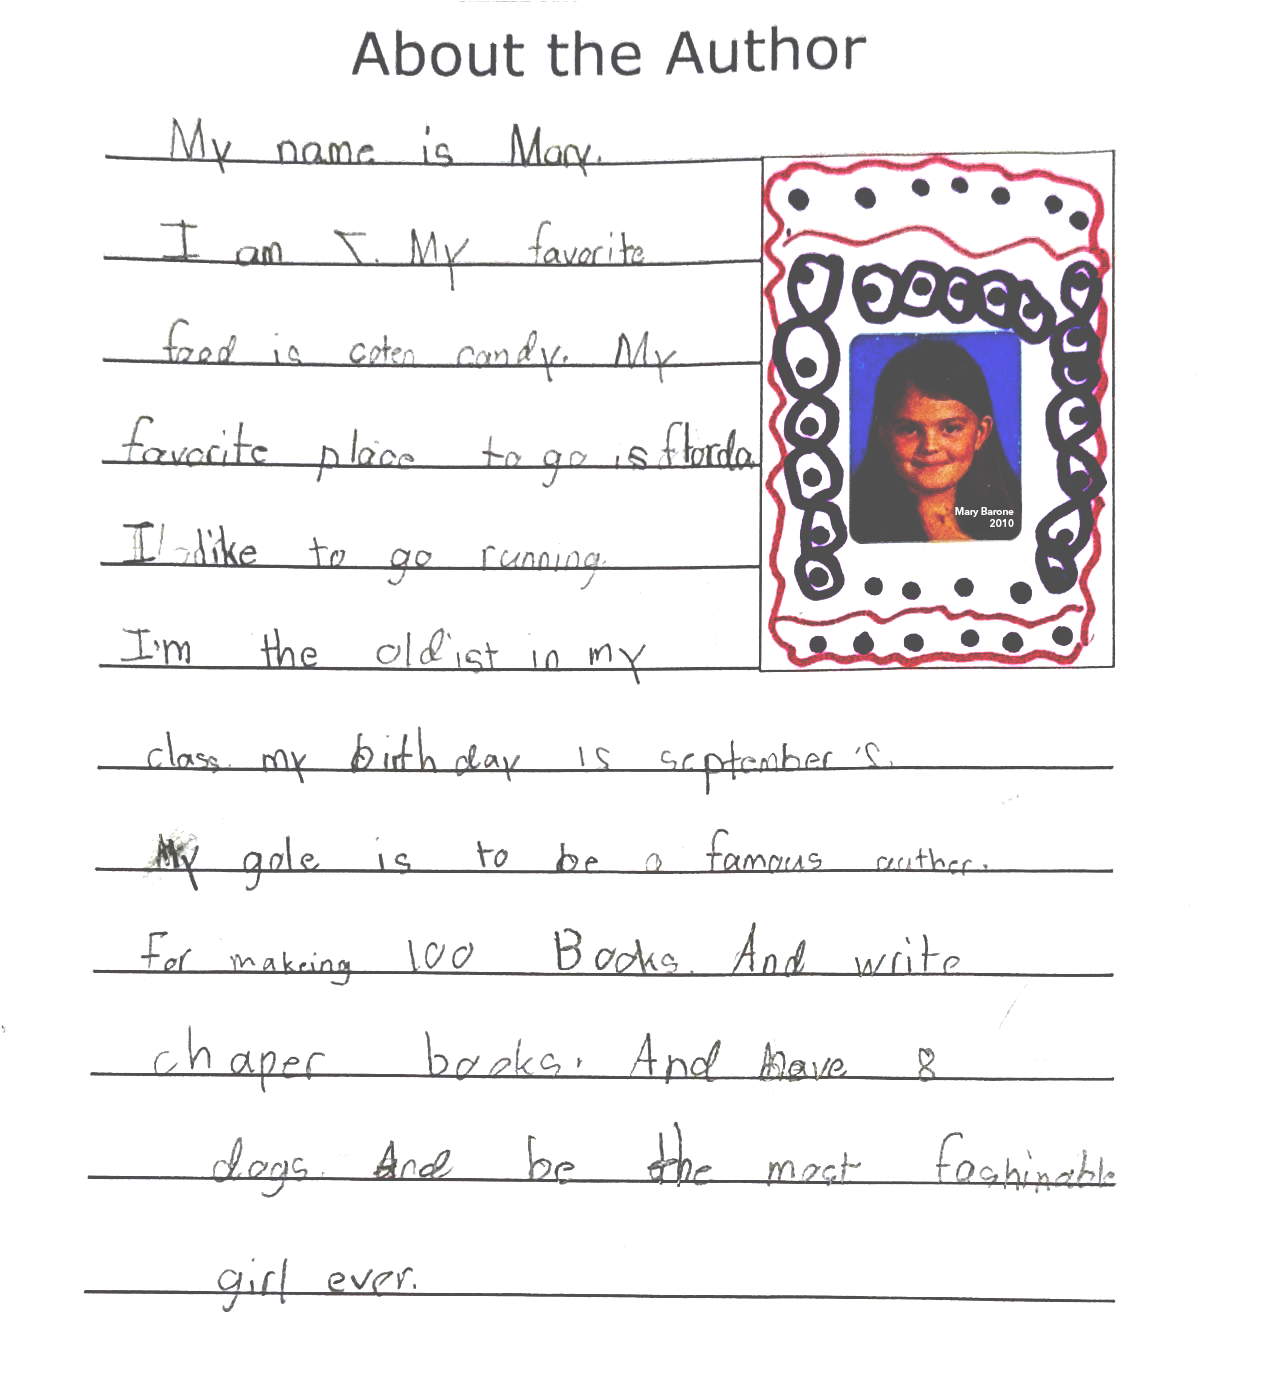 About the Author
My name is Mary.
I am 7. My favorite
food is coten candy. My
favorite place to go is florda
I like to go running.
I'm the oldist in my
class. my birth day is september 5.
My gole is to be a famous auther.
For makeing 100 Books. And write
chaper books. And have 8
dogs. And be the most fashinable
girl ever.
Mary Barone
2010